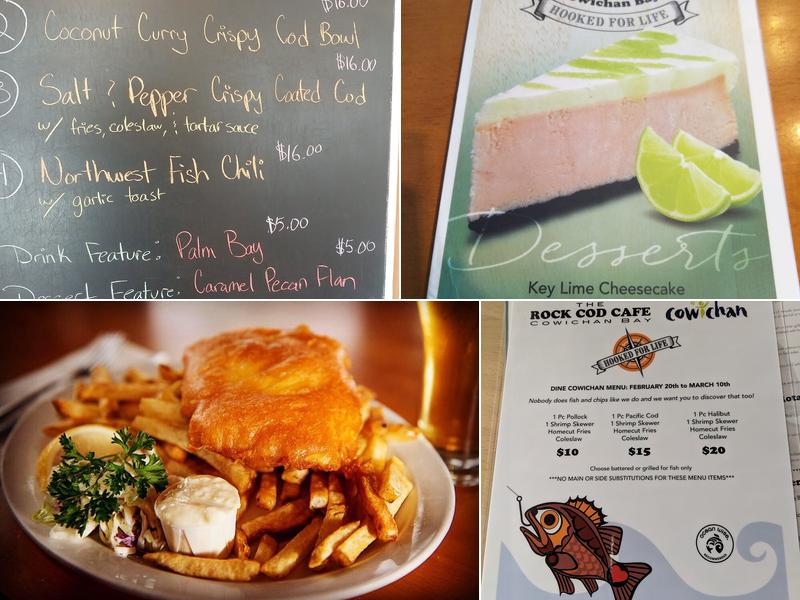 $16.00
2 Coconut Curry Crispy Cod Bowl
$16.00
3 Salt & Pepper Crispy Coated Cod
w/ fries, coleslaw, & tartar sauce
$16.00
4 Northwest Fish Chili
w/ garlic toast
$5.00
Drink Feature: Palm Bay
$5.00
Dessert Feature: Caramel Pecan Flan
Cowichan Bay
HOOKED FOR LIFE
Desserts
Key Lime Cheesecake
THE
ROCK COD CAFE
COWICHAN BAY
cowichan
HOOKED FOR LIFE
DINE COWICHAN MENU: FEBRUARY 20th to MARCH 10th
Nobody does fish and chips like we do and we want you to discover that too!
1 Pc Pollock
1 Shrimp Skewer
Homecut Fries
Coleslaw
$10
1 Pc Pacific Cod
1 Shrimp Skewer
Homecut Fries
Coleslaw
$15
1 Pc Halibut
1 Shrimp Skewer
Homecut Fries
Coleslaw
$20
Choose battered or grilled for fish only
***NO MAIN OR SIDE SUBSTITUTIONS FOR THESE MENU ITEMS***
OCEAN WISE